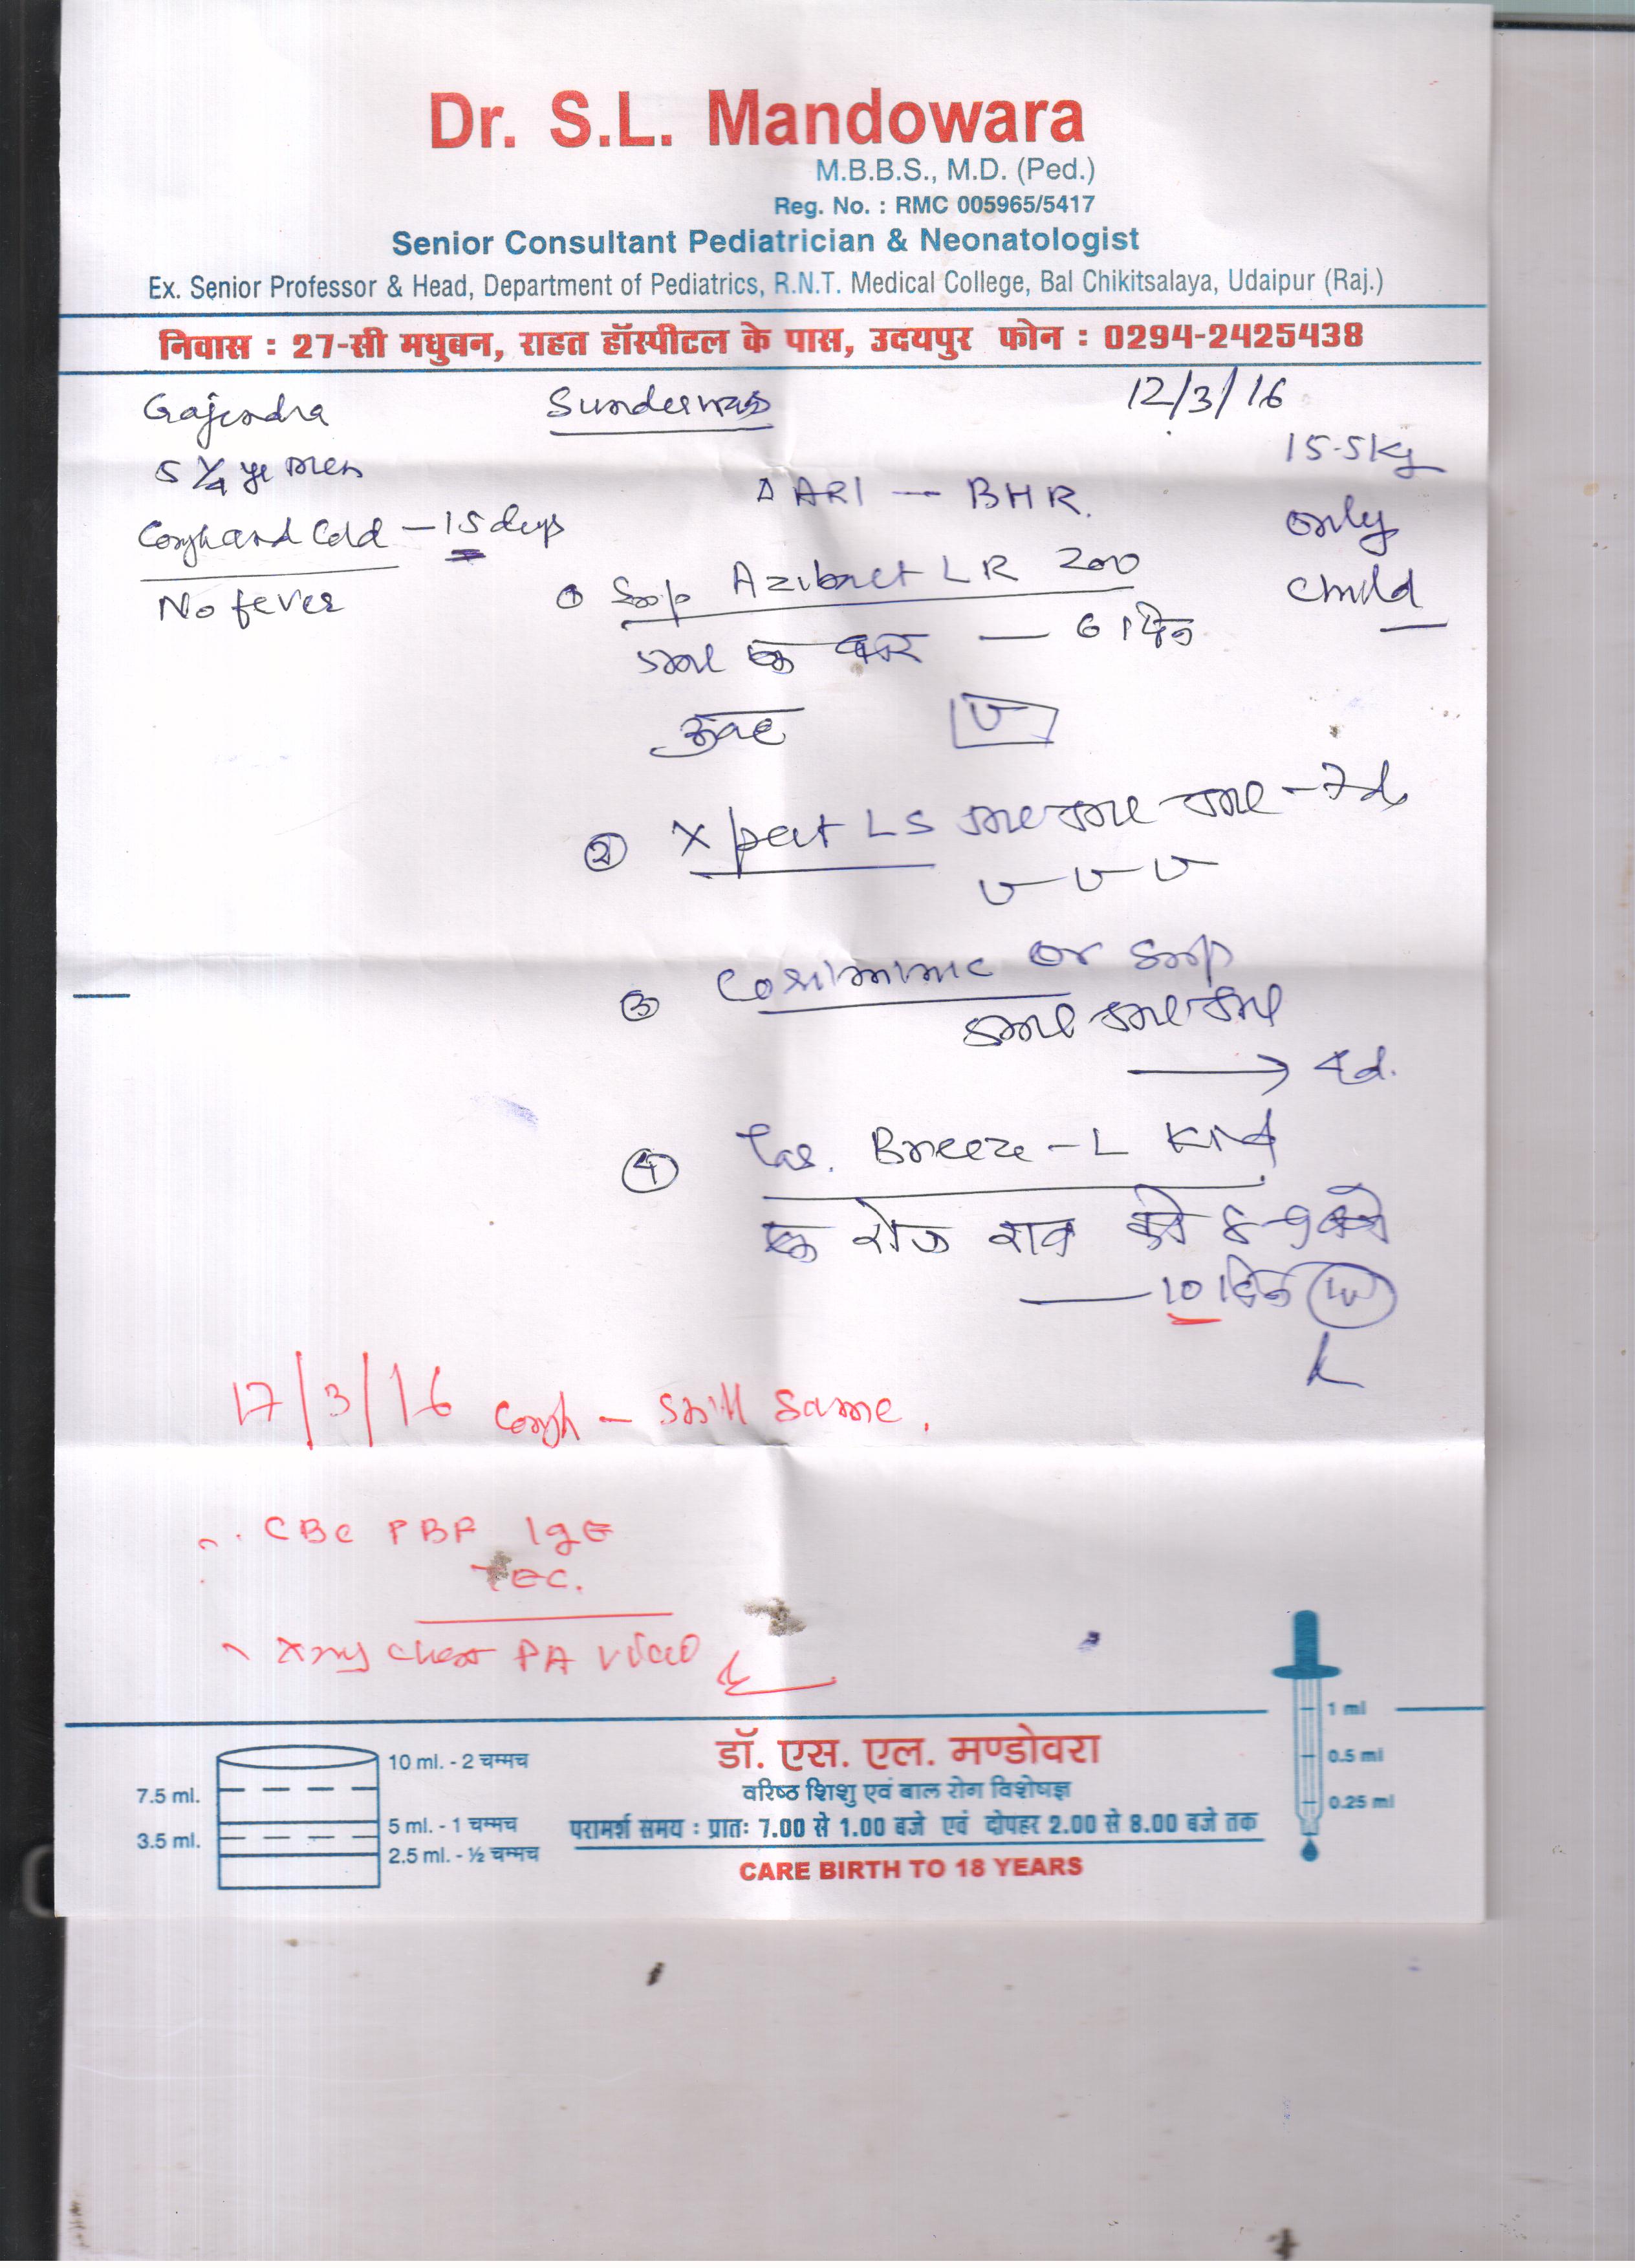 Dr. S.L. Mandowara
M.B.B.S., M.D. (Ped.)
Reg. No. : RMC 005965/5417
Senior Consultant Pediatrician & Neonatologist
Ex. Senior Professor & Head, Department of Pediatrics, R.N.T. Medical College, Bal Chikitsalaya, Udaipur (Raj.)
निवास : 27-सी मधुबन, राहत हॉस्पीटल के पास, उदयपुर फोन : 0294-2425438
Gajendra
12/3/16
5 1/4 yr
15.5 Kg
Cough and Cold - 15 days
No fever
only
child
Δ ARI - BHR.
① Syp Azibact LR 200
एक बार - 6 दिन
सुबह
② Xpert LS - 7d
③ or Syp
→ 4d.
④ Tab. Breeze-L Kid
एक रोज रात को 8-9 बजे
10 दिन
17/3/16 Cough - still same.
CBC PBF IgE
TEC.
Xray chest PA view
10 ml. - 2 चम्मच
7.5 ml.
5 ml. - 1 चम्मच
3.5 ml.
2.5 ml. - ½ चम्मच
डॉ. एस. एल. मण्डोवरा
वरिष्ठ शिशु एवं बाल रोग विशेषज्ञ
परामर्श समय : प्रातः 7.00 से 1.00 बजे एवं दोपहर 2.00 से 8.00 बजे तक
CARE BIRTH TO 18 YEARS
1 ml
0.5 ml
0.25 ml